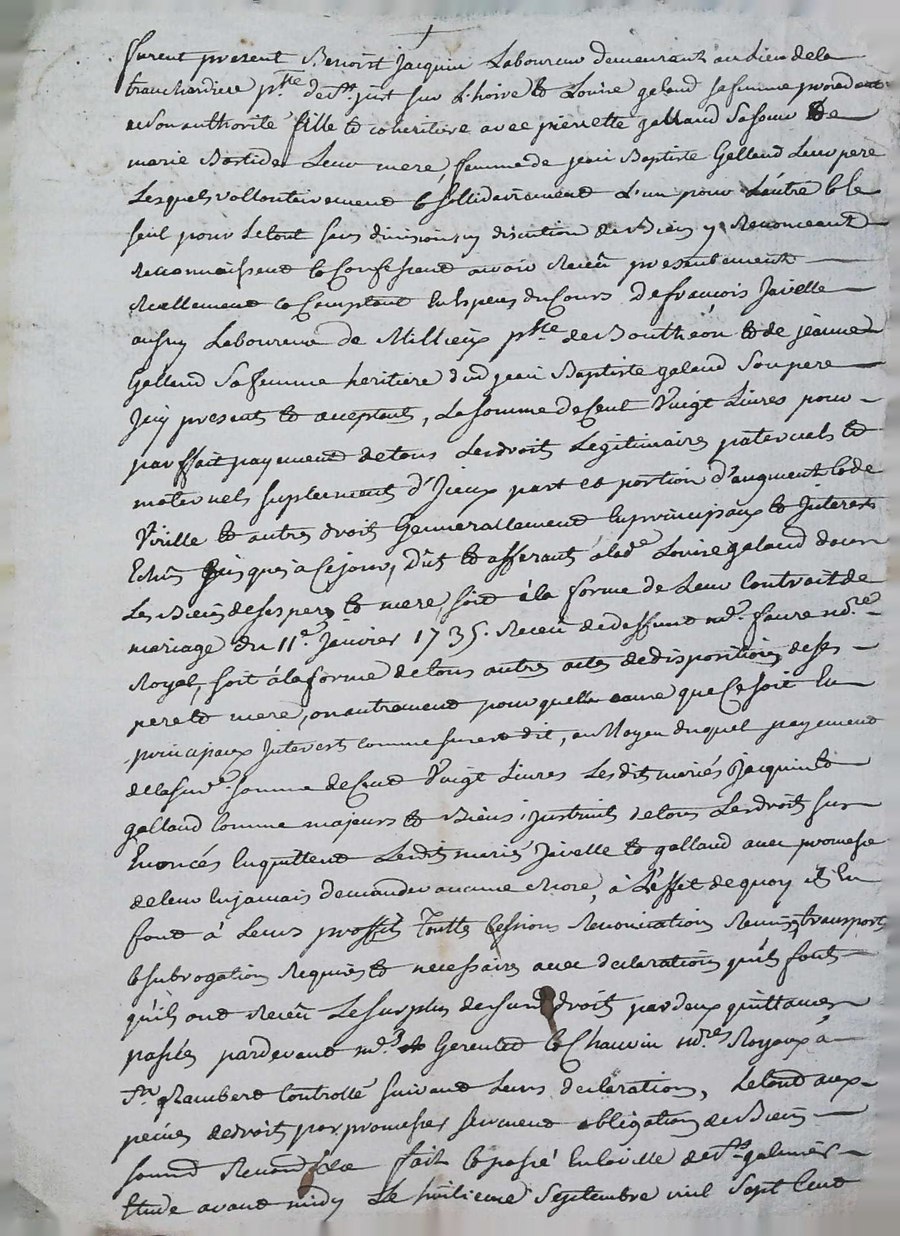 furent present Benoist Jacquin Laboureur demeurant au lieu dela
tranchardiere p.sse de st. just sur Lhoire & Louise galand sa femme procedant
de son authorité fille & coheritiere avec pierrette galland sa soeur de
marie Bastide Leur mere, femme de jean Baptiste Gelland Leur pere
Lesquels vollontairement & sollidairement L'un pour L'autre & le
seul pour Le tout sans division ny discution de Biens y Renonceant
reconnaissent & confessent avoir Receu presentement
Reellement & Comptant en Especes du Cours de françois Javelle
aussy Laboureur de Millieux p.sse de Bouthéon & de jeanne
Galland sa femme heritiere dud jean Baptiste galand son pere
Jcy presents & acceptants, La somme de Cent Vingt Livres pour
parffait payement de tous Les droit Legitimaires paternels &
maternels suplement d'Jceux part et portion d'augment & de
Virille & autres droit Generrallement en principaux & Jnterests
Echûs jusques a Ce jour, dûs & afferants à lad.e Louise galand dans
Les Biens de ses pere & mere, soit à la forme de Leur Contrait de
mariage du 11.e Janvier 1735. Receu de deffunt m.e faure no.re
Royal, soit à la forme de tous autres actes de dispositions de ses
pere & mere, ou autrement pour quelle cause que Ce soit En
principaux Jnterests comme sus est dit, au Moyen duquel payement
de la sus.e somme de Cent Vingt Livres Les dit mariés Jacquin &
galland Comme majeurs & Biens Jnstruits de tous Les droit sus
Enoncés Enquittent Les dit mariés Javelle & galland avec promesse
de leur En jamais demander aucune chose, à L'effet de quoy ils En
font à Leurs proffits Toutte Cessions Renonciations Remises transports
& subrogations Requises & necessaires avec declarations qu'ils font
qu'ils ont Receu Le surplus desd droit par deux quittances
passées pardevant m.es Gerentet & Chauvin no.res Royaux à
St. Rambert Controllé suivant Leurs declarations, Le tout aux
peines de droit par promesses serment obligation de Biens
soumis Renonçia fait & passé En la ville de St. galmier
Etude avant midy Le huitieme Septembre mil Sept Cent